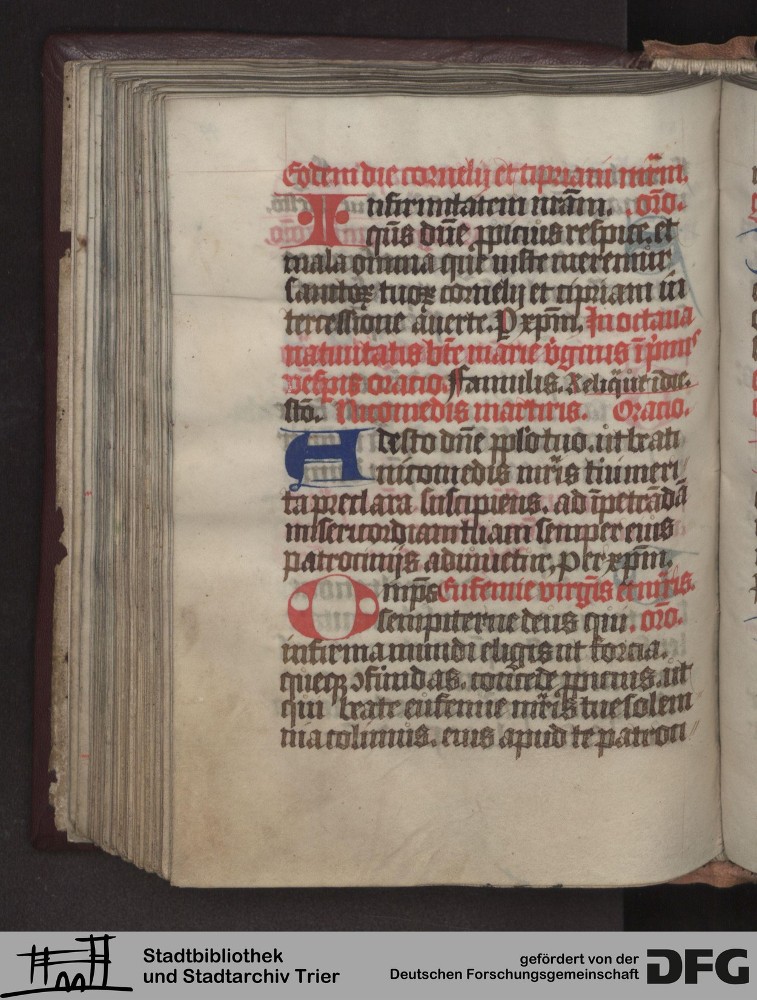 Eodem die cornelij et cipriani mr̄m.
Infirmitatem nr̄am. orō.
qūs dn̄e ꝓpicius respice. et
mala omnia que iuste meremur
sanctoꝝ tuoꝝ cornelij et cipriani in
tercessione auerte. P xp̄m. In octaua
natiuitatis bt̄e marie v̄ginis ip̄imis
vesp̄is oracio. Famulis. Reliq̄ ut i die
fest̄o. Nicomedis martiris. Oracio.
Adesto dn̄e ppl̄o tuo. ut beati
nicomedis mr̄is tui meri
ta preclara suscipiens. ad īpetrādā
misericordiam tuam semper eius
patrocinijs adiuuetur. Per xp̄m.
Omp̄s Eufemie virgīs et mr̄is.
sempiterne deus qui. orō.
infirma mundi eligis ut forcia.
queqꝫ ↄfundas. concede ꝓpicius. ut
qui beate eufemie mr̄is tue solem
nia colimus. eius apud te patroci
Stadtbibliothek
und Stadtarchiv Trier
gefördert von der
Deutschen Forschungsgemeinschaft
DFG